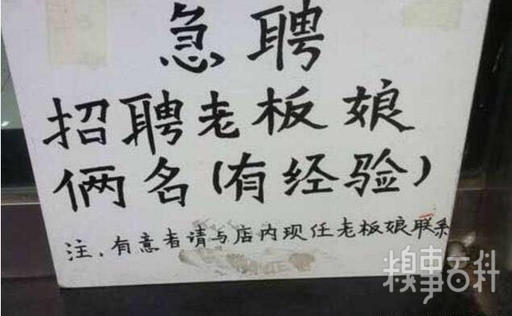 急聘
招聘老板娘
俩名(有经验)
注、有意者请与店内现任老板娘联系
糗事百科